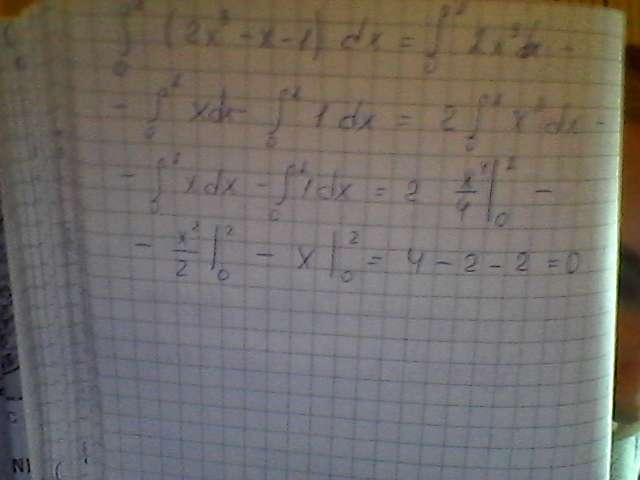 ∫₀² (2x³ - x - 1) dx = ∫₀² 2x³dx -
- ∫₀² xdx - ∫₀² 1 dx = 2 ∫₀² x³ dx -
- ∫₀² x dx - ∫₀² 1 dx = 2 x⁴/4 |₀² -
- x²/2 |₀² - x |₀² = 4 - 2 - 2 = 0